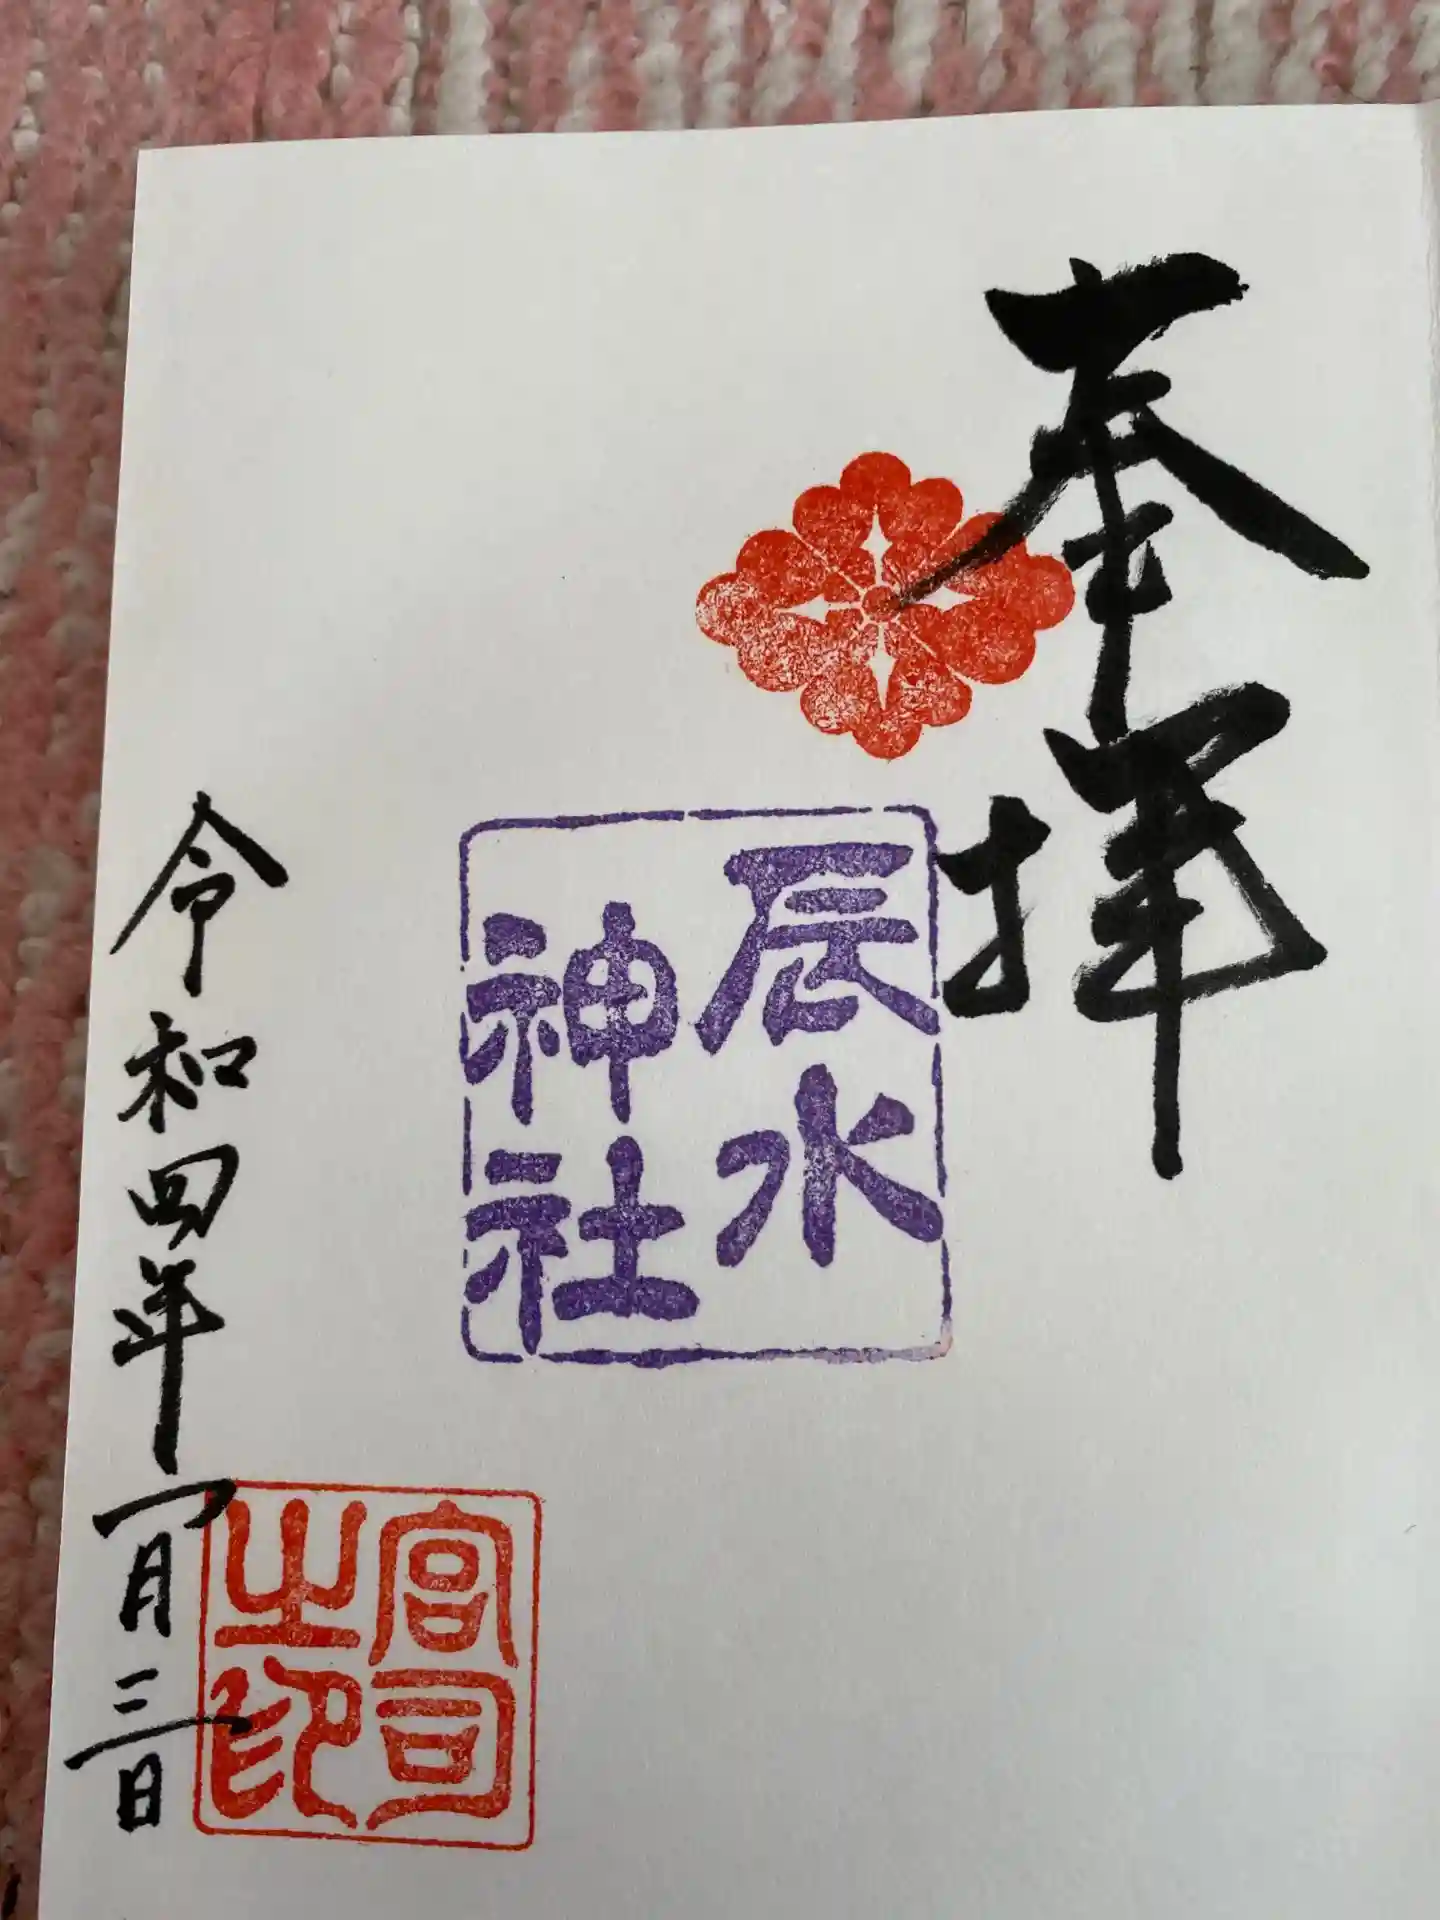 奉拝
辰水
神社
宮司
之印
令和四年一月三日